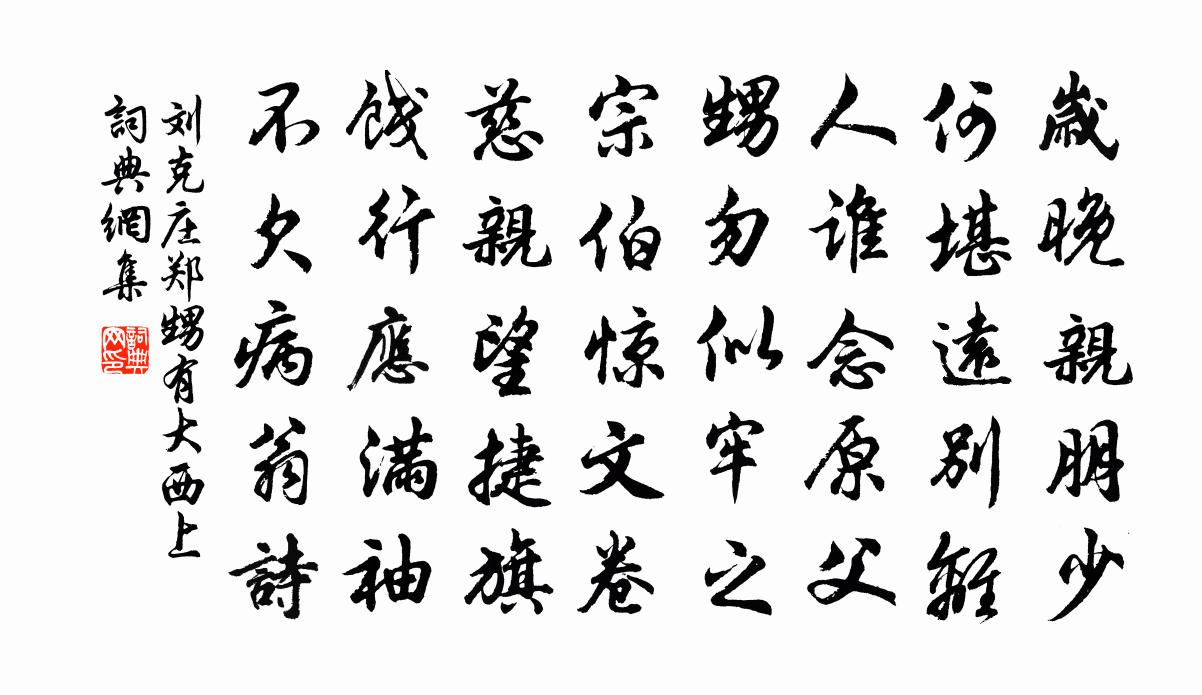 歲晚親朋少
何堪遠別離
人谁念原父
甥勿似牢之
宗伯惊文卷
慈親望捷旗
餞行應滿袖
不欠病翁詩
刘克庄郑甥有大西上
詞典網集
詞典网印